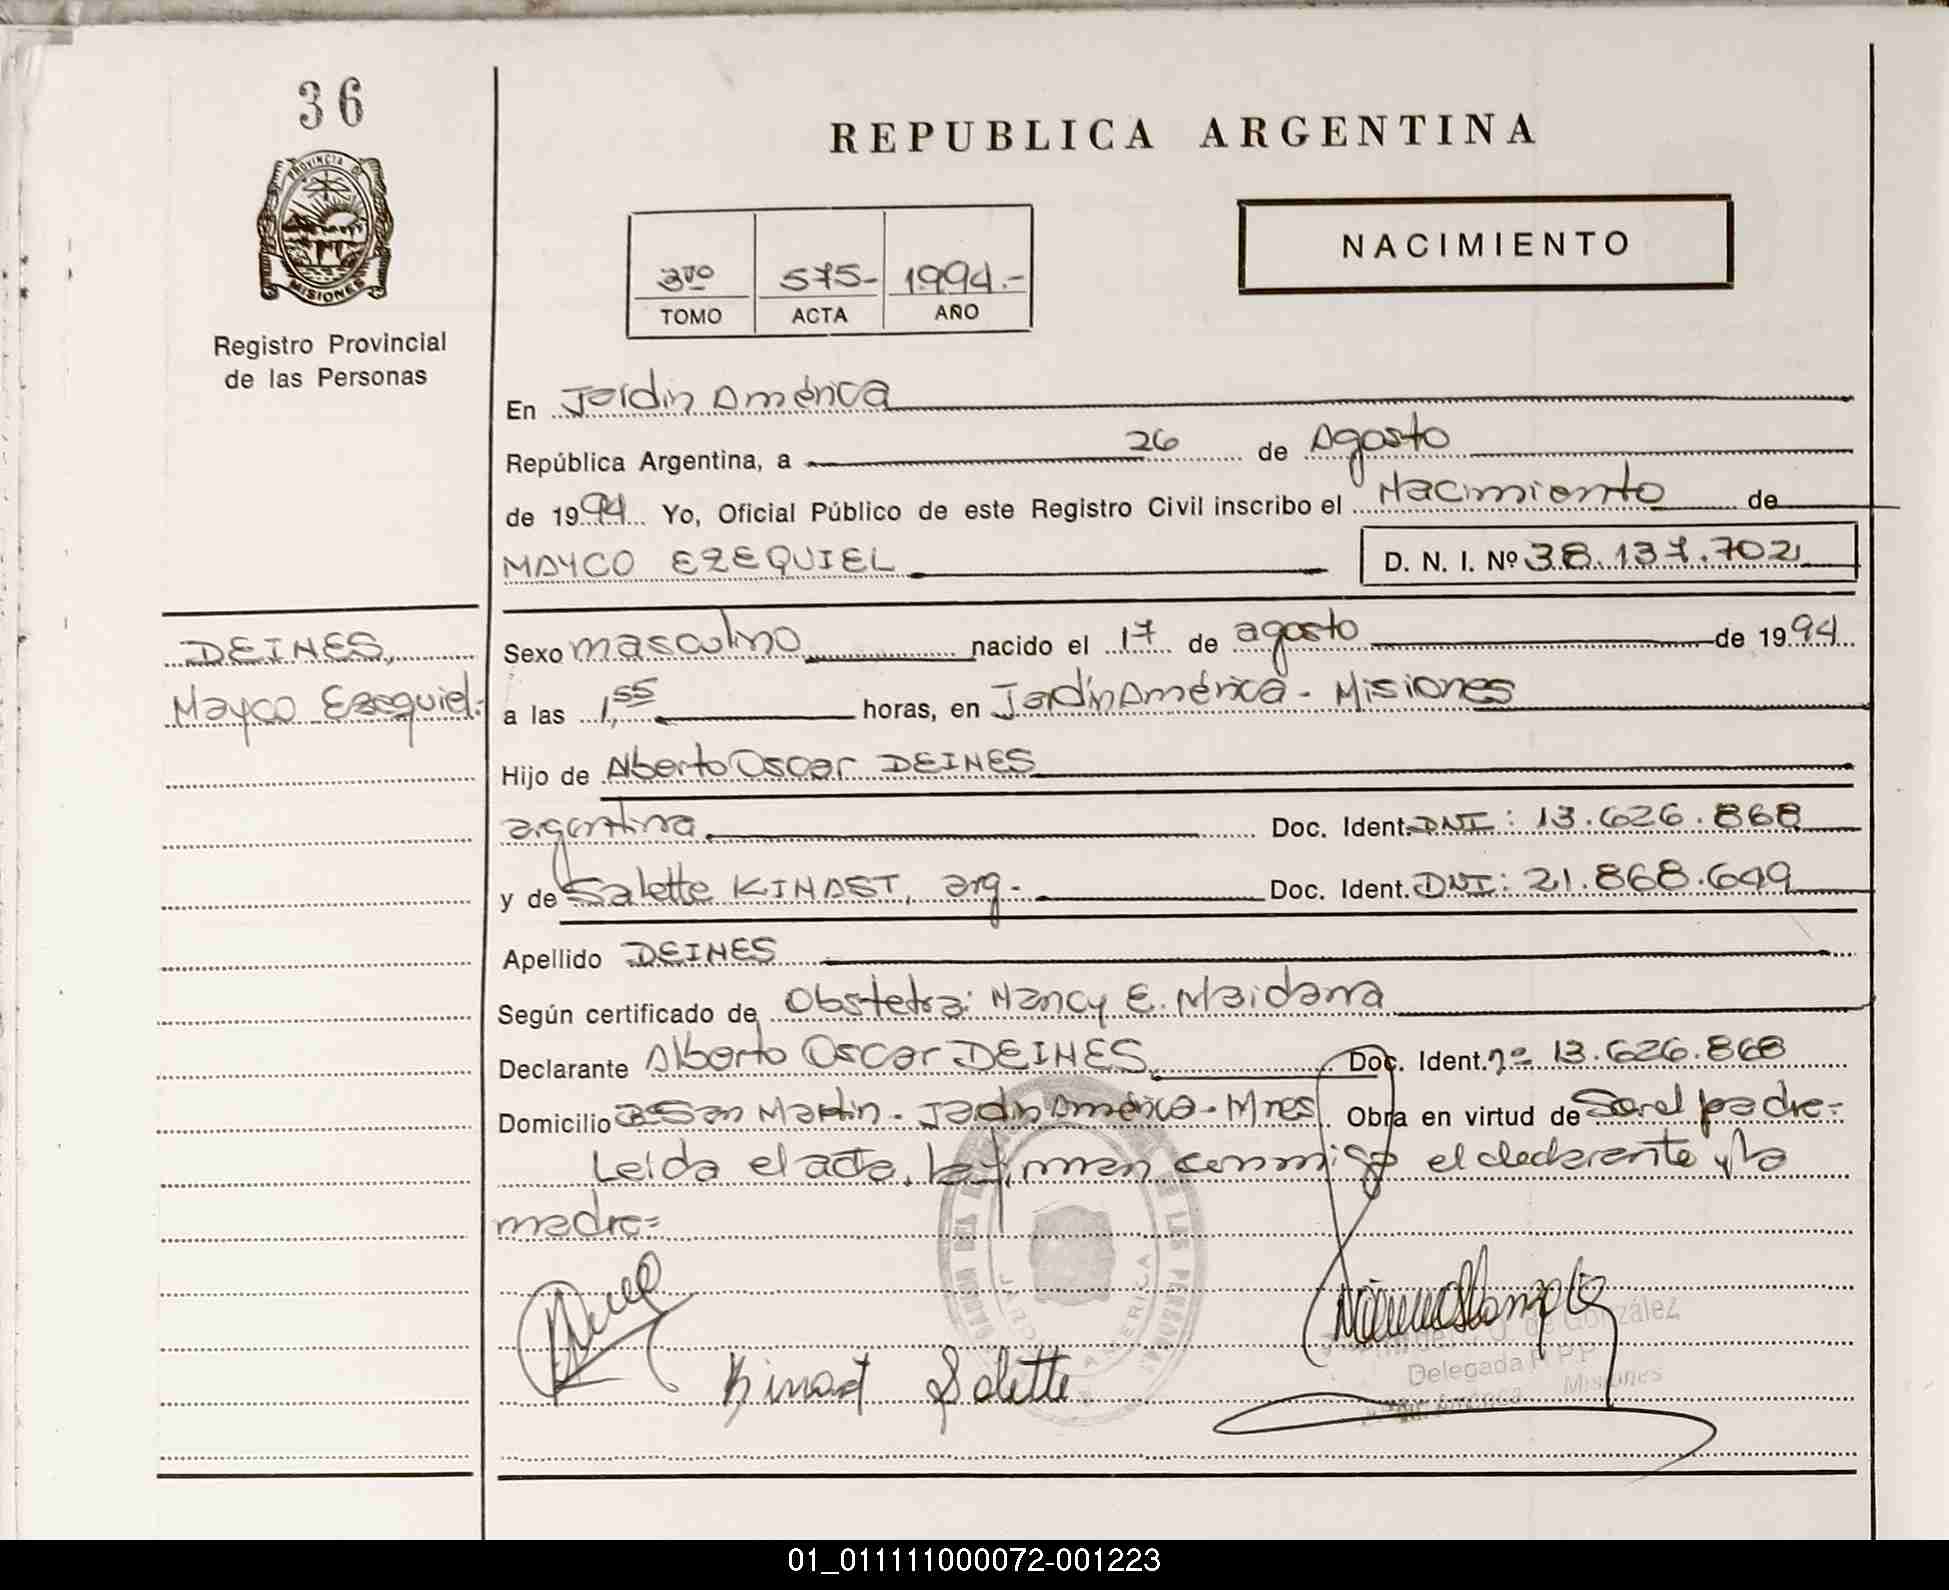 36
PROVINCIA DE
MISIONES
Registro Provincial
de las Personas
REPUBLICA ARGENTINA
NACIMIENTO
3ro 575- 1994.-
TOMO ACTA AÑO
En Jardín América
República Argentina, a 26 de Agosto
de 1994 Yo, Oficial Público de este Registro Civil inscribo el Nacimiento de
MAYCO EZEQUIEL D. N. I. Nº 38.137.702
DEINES,
Mayco Ezequiel.-
Sexo masculino nacido el 17 de agosto de 1994
a las 1,55 horas, en Jardín América - Misiones
Hijo de Alberto Oscar DEINES
argentina Doc. Ident. DNI: 13.626.868
y de Salette KINAST, arg.- Doc. Ident. DNI: 21.868.649
Apellido DEINES
Según certificado de Obstetra: Nancy E. Maidana
Declarante Alberto Oscar DEINES Doc. Ident. nº 13.626.868
Domicilio San Martín - Jardín América - Mnes Obra en virtud de Ser el padre=
Leída el acta, la firman conmigo el declarante y la
madre=
Kinast Salette
de González
Delegada R.P.P
América Misiones
01_011111000072-001223